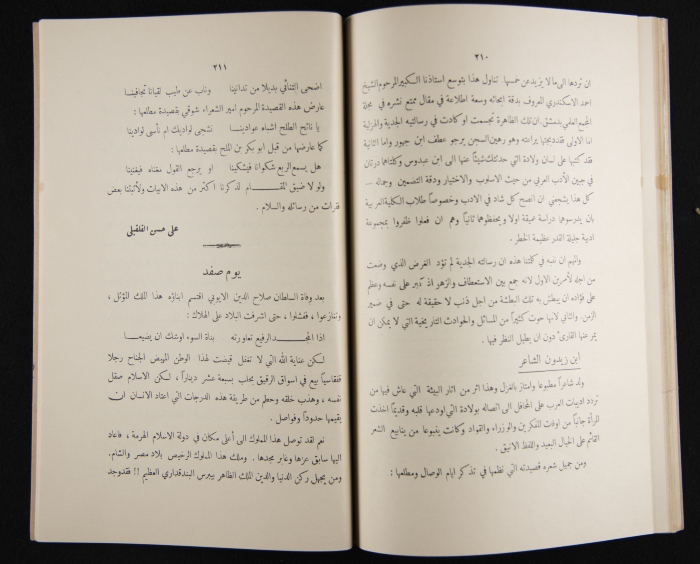 ٢١٠
ان نردها الى ما لا يزيد عن خمسها تناول هذا بتوسع استاذنا الكبير المرحوم الشيخ
احمد الاسكندري المعروف بدقة ابحاثه وسعة اطلاعه في مقال ممتع نشره في مجلة
المجمع العلمي بدمشق. ان تلك الظاهرة تجسمت او كادت في رسالتيه الجدية والهزلية
اما الاولى فقد دبجتها يراعته وهو رهين السجن يرجو عطف ابن جهور واما الثانية
فقد كتبها على لسان ولادة التي حدثتك شيئاً عنها الى ابن عبدوس وكلتاهما درتان
في جبين الأدب العربي من حيث الاسلوب والاختيار ودقة التضمين وجماله ــ
كل هذا يشجعني ان انصح كل شاد في الادب وخصوصاً طلاب الكلية العربية
بان يدرسوها دراسة عميقة اولا ويحفظوها ثانياً وهم ان فعلوا ظفروا بمجموعة
ادبية جليلة القدر عظيمة الخطر .
والمهم ان ننبه في كلمتنا هذه ان رسالته الجدية لم تؤد الغرض الذي وضعت
من اجله لأمرين الاول لانه جمع بين الاستعطاف والزهو اذ كبر على نفسه وعظم
على فؤاده ان يبطش به تلك البطشة من اجل ذنب لا حقيقة له حتى في ضمير
الزمن. والثاني لانها حوت كثيراً من المسائل والحوادث التاريخية التي لا يمكن ان
يمر عنها القارئ دون ان يطيل النظر فيها .
ابن زيدون الشاعر
ولد شاعراً مطبوعا وامتاز بالغزل وهذا اثر من اثار البيئة التي عاش فيها من
تردد اديبات العرب على المحافل الى اتصاله بولادة التي اودعها قلبه وقديماً اخذت
المرأة جانباً من اوقات المفكرين والوزراء والقواد وكانت ينبوعا من ينابيع الشعر
القائم على الخيال البعيد واللفظ الانيق .
ومن جميل شعره قصيدته التي نظمها في تذكر ايام الوصال ومطلعها :
٢١١
اضحى التنائي بديلا من تدانينا وناب عن طيب لقيانا تجافينا
عارض هذه القصيدة المرحوم امير الشعراء شوقي بقصيدة مطلعها :
يا نائح الطلح اشباه عوادينا نشجى لواديك ام نأسى لوادينا
كما عارضها من قبل ابو بكر بن الملح بقصيدة مطلعها :
هل يسمع الربع شكوانا فيشكينا او يرجع القول مغناه فيغنينا
ولو لا ضيق المقـــام لذكرنا اكثر من هذه الابيات ولأثبتنا بعض
فقرات من رسائله والسلام .
علي حسن القلقيلي
يوم صفد
بعد وفاة السلطان صلاح الدين الايوبي اقتسم ابناؤه هذا الملك المؤثل ،
وتنازعوا ، ففشلوا ، حتى اشرفت البلاد على الهلاك :
اذا المجـــد الرفيع تعاورته بناة السوء اوشك ان يضيعا
لكن عناية الله التي لا تغفل قيضت لهذا الوطن المهيض الجناح رجلا
قفقاسياً بيع في اسواق الرقيق بحلب بسبعة عشر ديناراً ، لكن الاسلام صقل
نفسه ، وهذب خلقه وحطم من طريقة هذه الدرجات التي اعتاد الانسان ان
يقيمها حدوداً وفواصل .
نعم لقد توصل هذا المملوك الى أعلى مكان في دولة الاسلام الهرمة ، فاعاد
اليها سابق عزها وغابر مجدها ، وملك هذا المملوك الرخيص بلاد مصر والشام.
ومن يجهل ركن الدنيا والدين الملك الظاهر بيبرس البندقداري العظيم !! فقد وجد